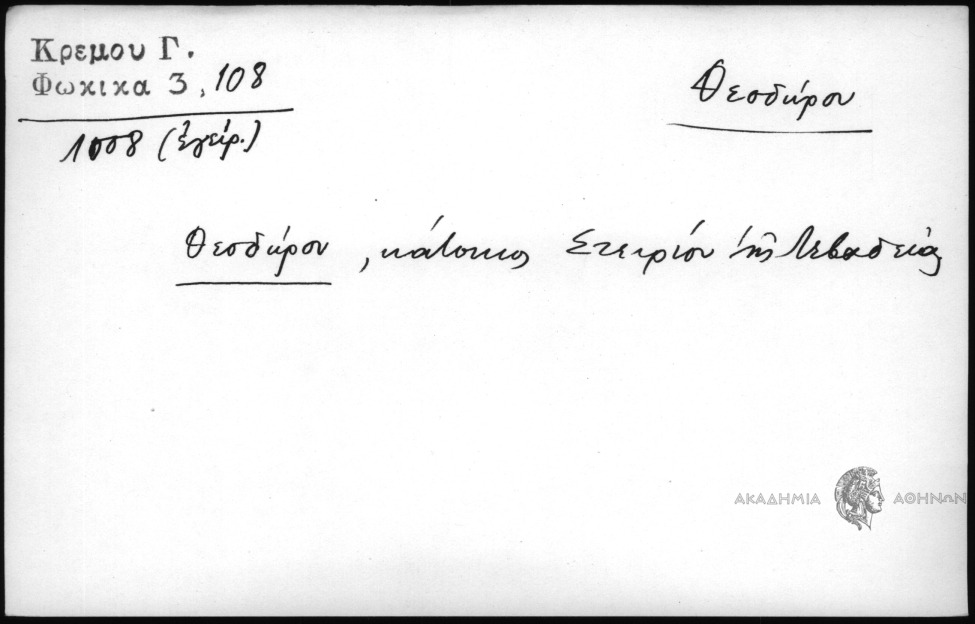 Κρεμου Γ.
Φωκικα 3, 108
1008 (ἐγείρ.)
Θεοδώρου
Θεοδώρου, κάτοικος Στειρίου τῆς Λεβαδείας
ΑΚΑΔΗΜΙΑ ΑΘΗΝΩΝ